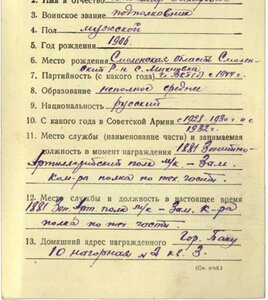 2. Имя и отчество
3. Воинское звание подполковник
4. Пол мужской
5. Год рождения 1906.
6. Место рождения Смоленская область Смолен-
ский р-н с.
7. Партийность (с какого года) чл. ВКП(б) с 1944 г.
8. Образование неполное среднее
9. Национальность русский
10. С какого года в Советской Армии с 1928-1930 г. и с
1932 г.
11. Место службы (наименование части) и занимаемая
должность в момент награждения 1881 Зенитно-
Артиллерийский полк м/к - Зам.
Ком-ра полка по тех. части.
12. Место службы и должность в настоящее время
1881 Зен. Арт. полк м/к - Зам. К-ра
полка по тех. части.
13. Домашний адрес награжденного Гор. Баку
10 нагорная № 2 кв. 3.
(См. н/об.)